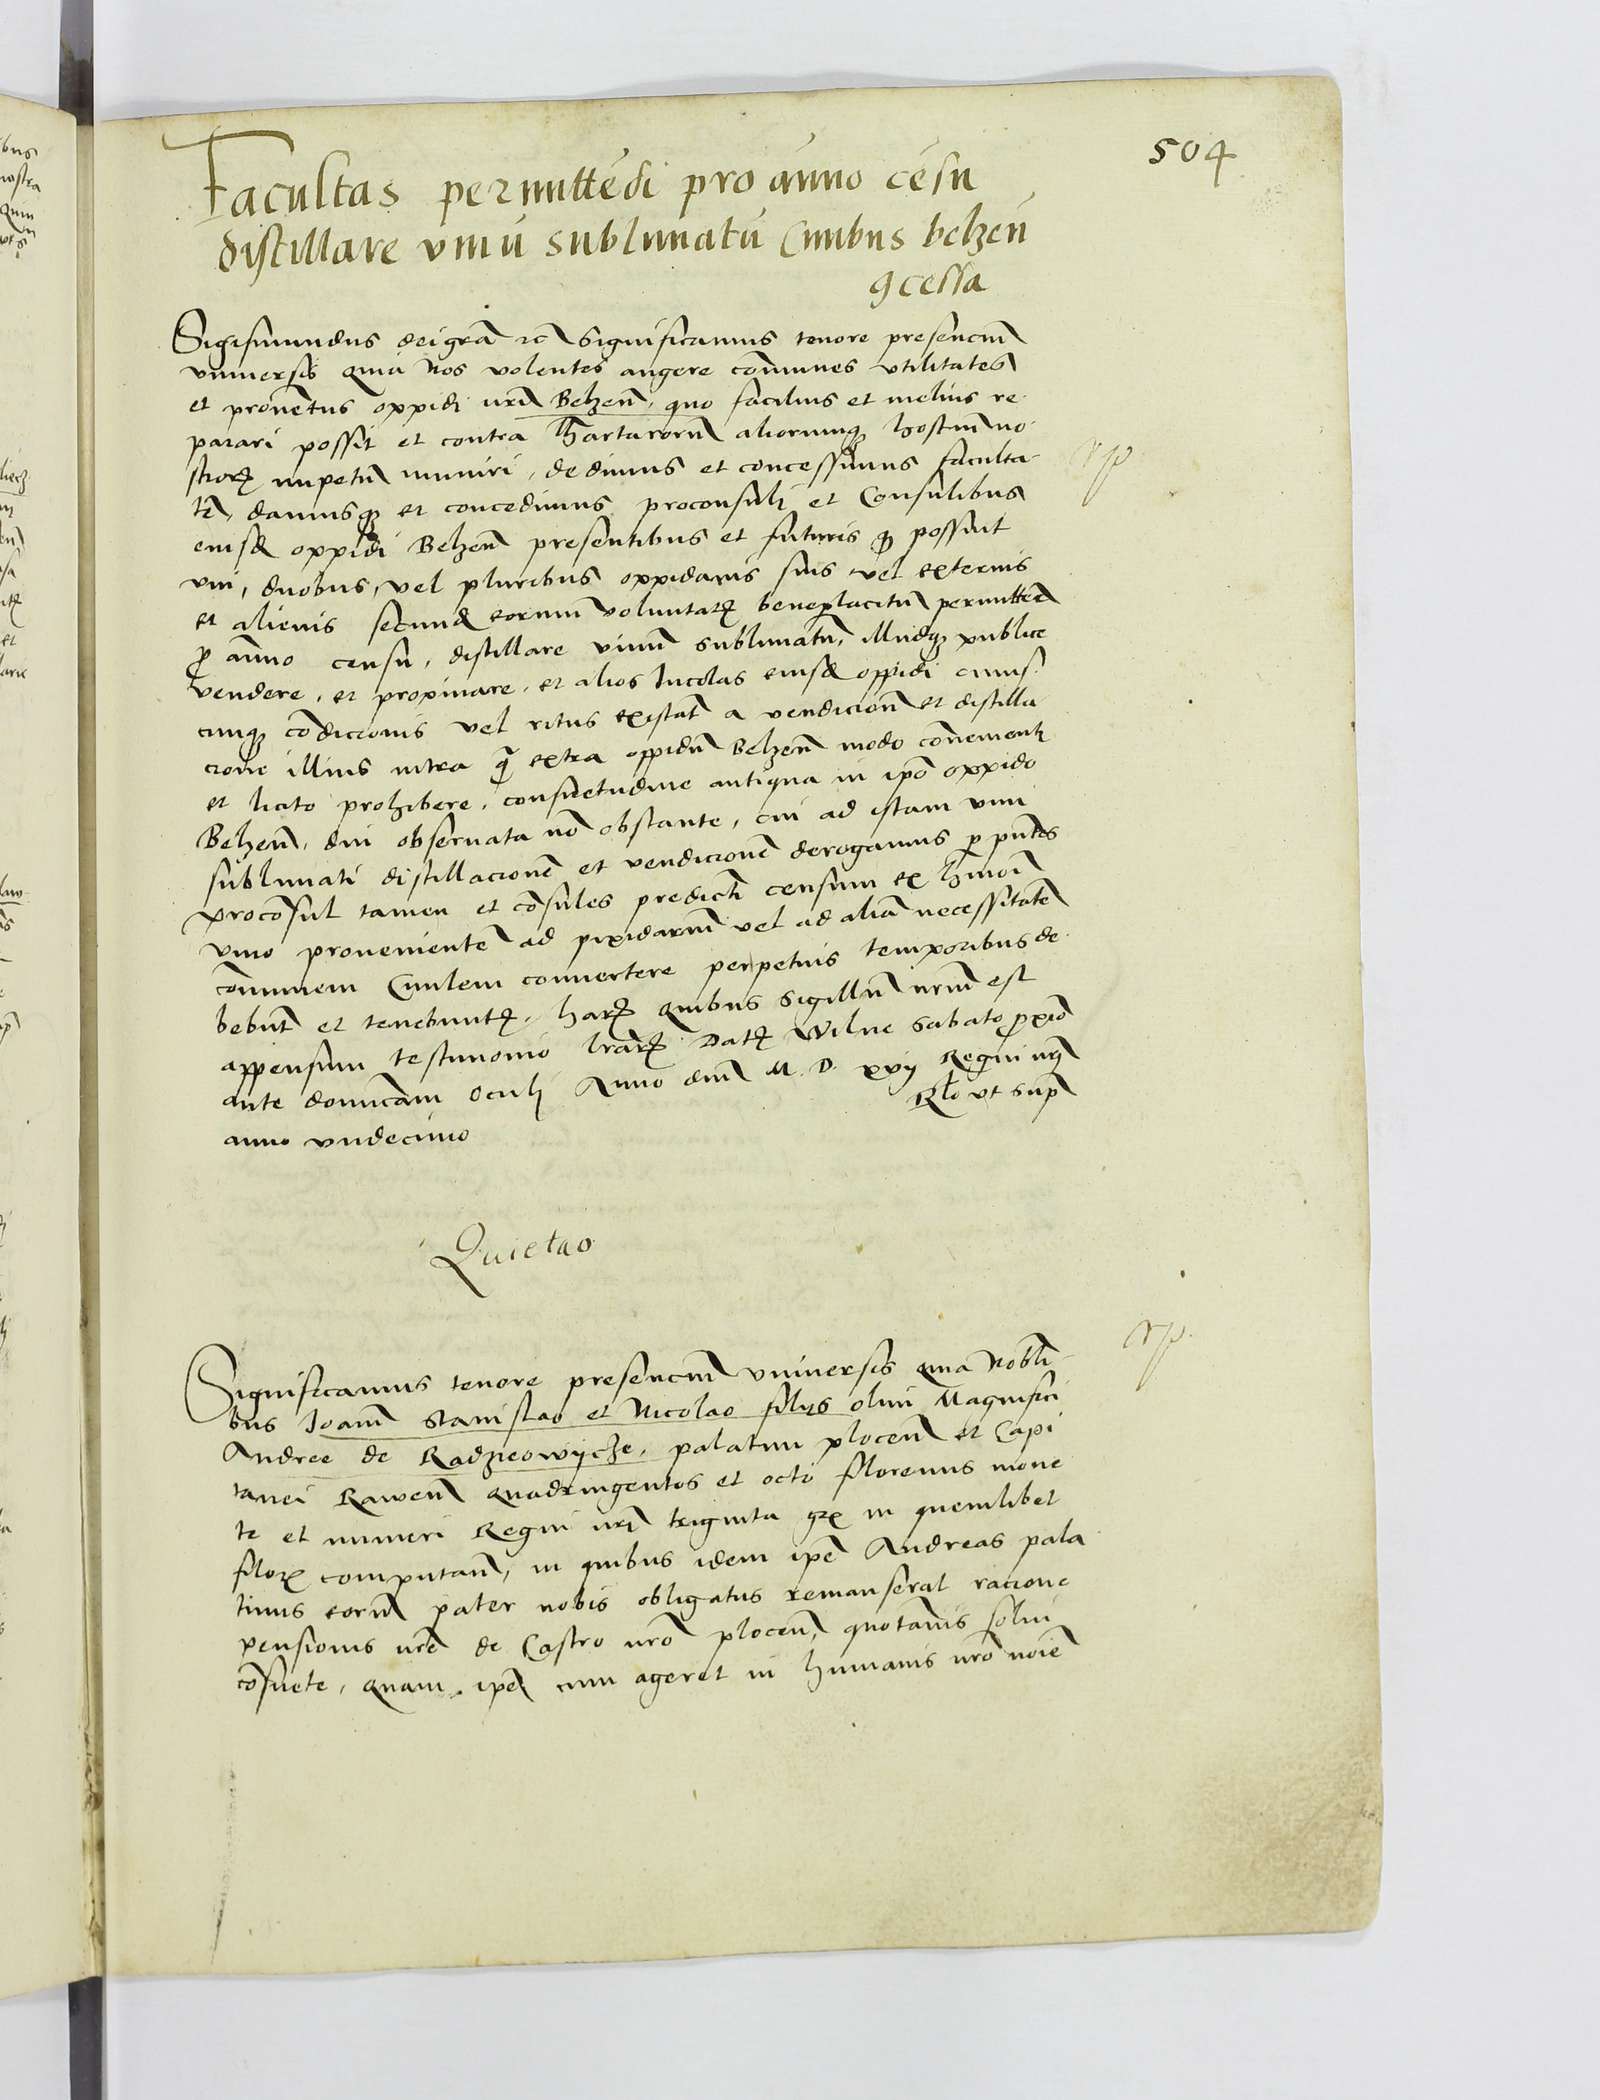 504
Facultas permittēdi pro anno cēsu
distillare vinū sublimatū Civibus belzen̄
ꝯcessa
Sigismundus dei grā ꝛc̄ Significamus tenore presenciū
universis quia Nos volentes augere com̄unes utilitates
et proventus oppidi nrī Belzen̄, quo facilius et melius re-
parari possit et contra Thartarorū aliorumqꝫ hostiū no-
strorꝫ impetū muniri, dedimus et concessimus faculta-
tē, damusqꝫ et concedimus proconsuli et Consulibus
eiusd̄ oppidi Belzen̄ presentibus et futuris qꝫ possint
uni, duobus, vel pluribus oppidanis suis vel externis
et alienis secund̄ eorum voluntatꝫ beneplacitū permitterē
ꝓ anno censu, distillare vinum sublimatū, illudqꝫ publice
vendere, et propinare, et alios Incolas eiusd̄ oppidi cuius-
cunqꝫ cōdicionis vel ritus existāt a vendicionē et distilla
cione illius intra qꝫ extra oppidū Belzen̄ modo convenienti
et licito prohibere, consuetudine antiqua in ip̄o oppido
Belzen̄, diu observata nō obstante, cui ad istam vini
sublimati distillacionē et vendicionē derogamus ꝑ p̄ntes
proconsul tamen et cōsules predicti censum ex hmōi
vino provenientē ad pixidariū vel ad aliā necessitatē
com̄unem Civilem convertere perpetuis temporibus de-
bebunt et tenebuntꝫ, harꝫ quibus Sigillū nrm̄ est
appensum testimonio lrarꝫ Datꝫ Wilne sabato ꝓxīo
ante dominicam Oculi Anno dnī M. D. xvij Regni nrī
anno undecimo
Rlo ut supꝫ
Quietao
rp
Significamus tenore presenciū universis quia Nobili-
bus Joanī Stanislao et Nicolao filiis olim Magnifici
Andree de Radzieowycze, palatini plocen̄ et Capi
tanei Rawen̄ quadringentos et octo florenus mone
te et numeri Regni nrī triginta grꝫ in quemlibet
florꝫ computan̄, in quibus idem ip̄e Andreas pala
tinus eorū pater nobis obligatus remanserat racione
pensionis nrē de Castro nrō plocen̄, quotānis solui
cōsuete, quam ip̄e cum ageret in humanis nrō noīe